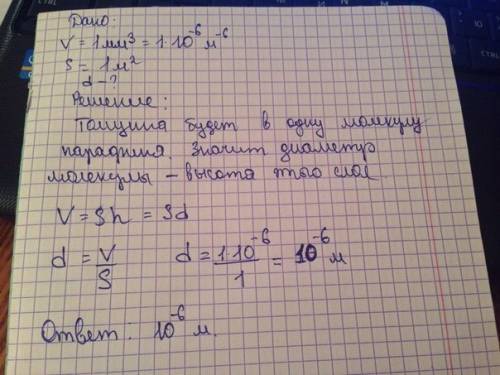 Дано:
V = 1мм³ = 1·10⁻⁶ м⁻⁶
S = 1м²
d - ?
Решение:
Толщина будет в одну молкулу
парафина. Значит диаметр
молекулы – высота этого слоя
V = Sh = Sd
d = V/S d = 1·10⁻⁶/1 = 10⁻⁶ м
Ответ: 10⁻⁶ м.